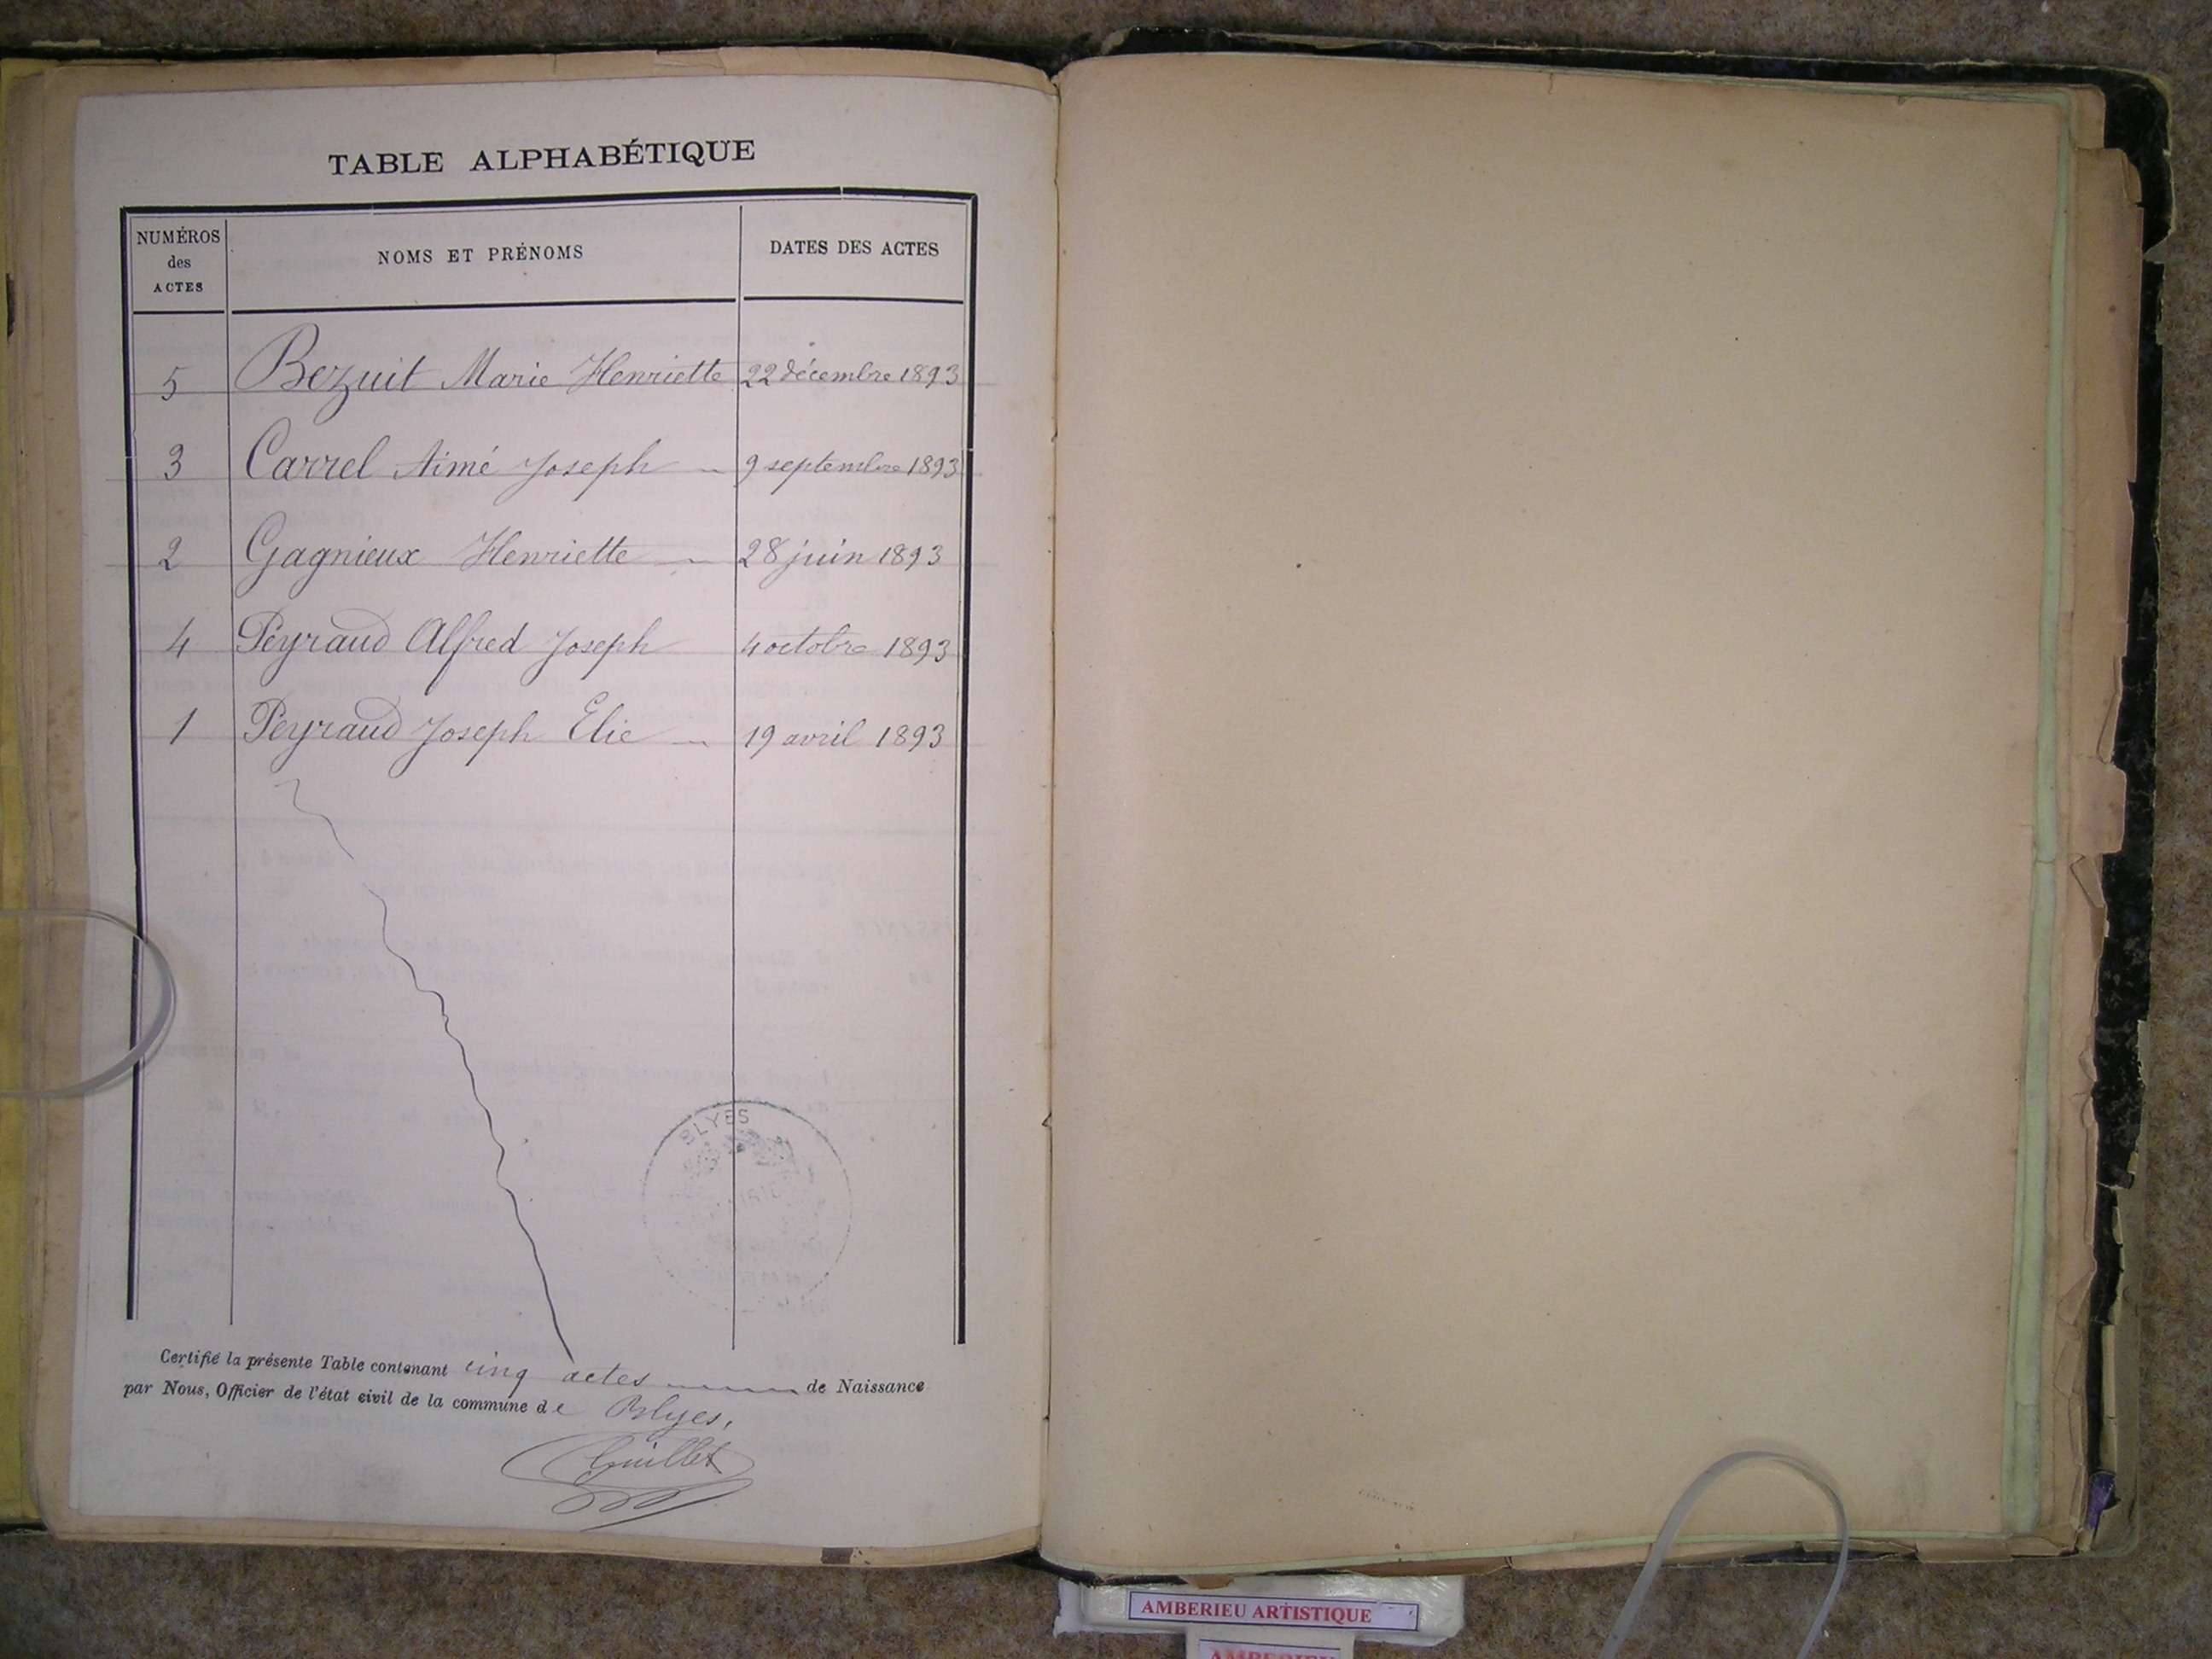 TABLE ALPHABÉTIQUE
NUMÉROS
des
ACTES
NOMS ET PRÉNOMS
DATES DES ACTES
5 Bezuit Marie Henriette 22 décembre 1893
3 Carrel Aimé Joseph 9 septembre 1893
2 Gagnieux Henriette 28 juin 1893
4 Peyraud Alfred Joseph 4 octobre 1893
1 Peyraud Joseph Elie 19 avril 1893
BLYES
Certifié la présente Table contenant cinq actes de Naissance
par Nous, Officier de l'état civil de la commune de Blyes,
AMBERIEU ARTISTIQUE
AMBERIEU